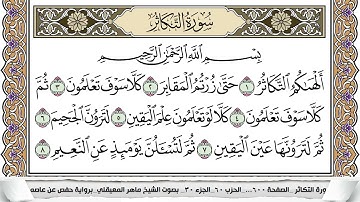 سُورَةُ التَّكَاثُرِ
بِسْمِ اللَّهِ الرَّحْمَٰنِ الرَّحِيمِ
أَلْهَاكُمُ التَّكَاثُرُ ١ حَتَّىٰ زُرْتُمُ الْمَقَابِرَ ٢ كَلَّا سَوْفَ تَعْلَمُونَ ٣ ثُمَّ
كَلَّا سَوْفَ تَعْلَمُونَ ٤ كَلَّا لَوْ تَعْلَمُونَ عِلْمَ الْيَقِينِ ٥ لَتَرَوُنَّ الْجَحِيمَ ٦
ثُمَّ لَتَرَوُنَّهَا عَيْنَ الْيَقِينِ ٧ ثُمَّ لَتُسْأَلُنَّ يَوْمَئِذٍ عَنِ النَّعِيمِ ٨
رة التكاثر ..الصفحة ٦٠٠... الحزب ٦٠..الجزء ٣٠.. بصوت الشيخ ماهر المعيقلي برواية حفص عن عاصم